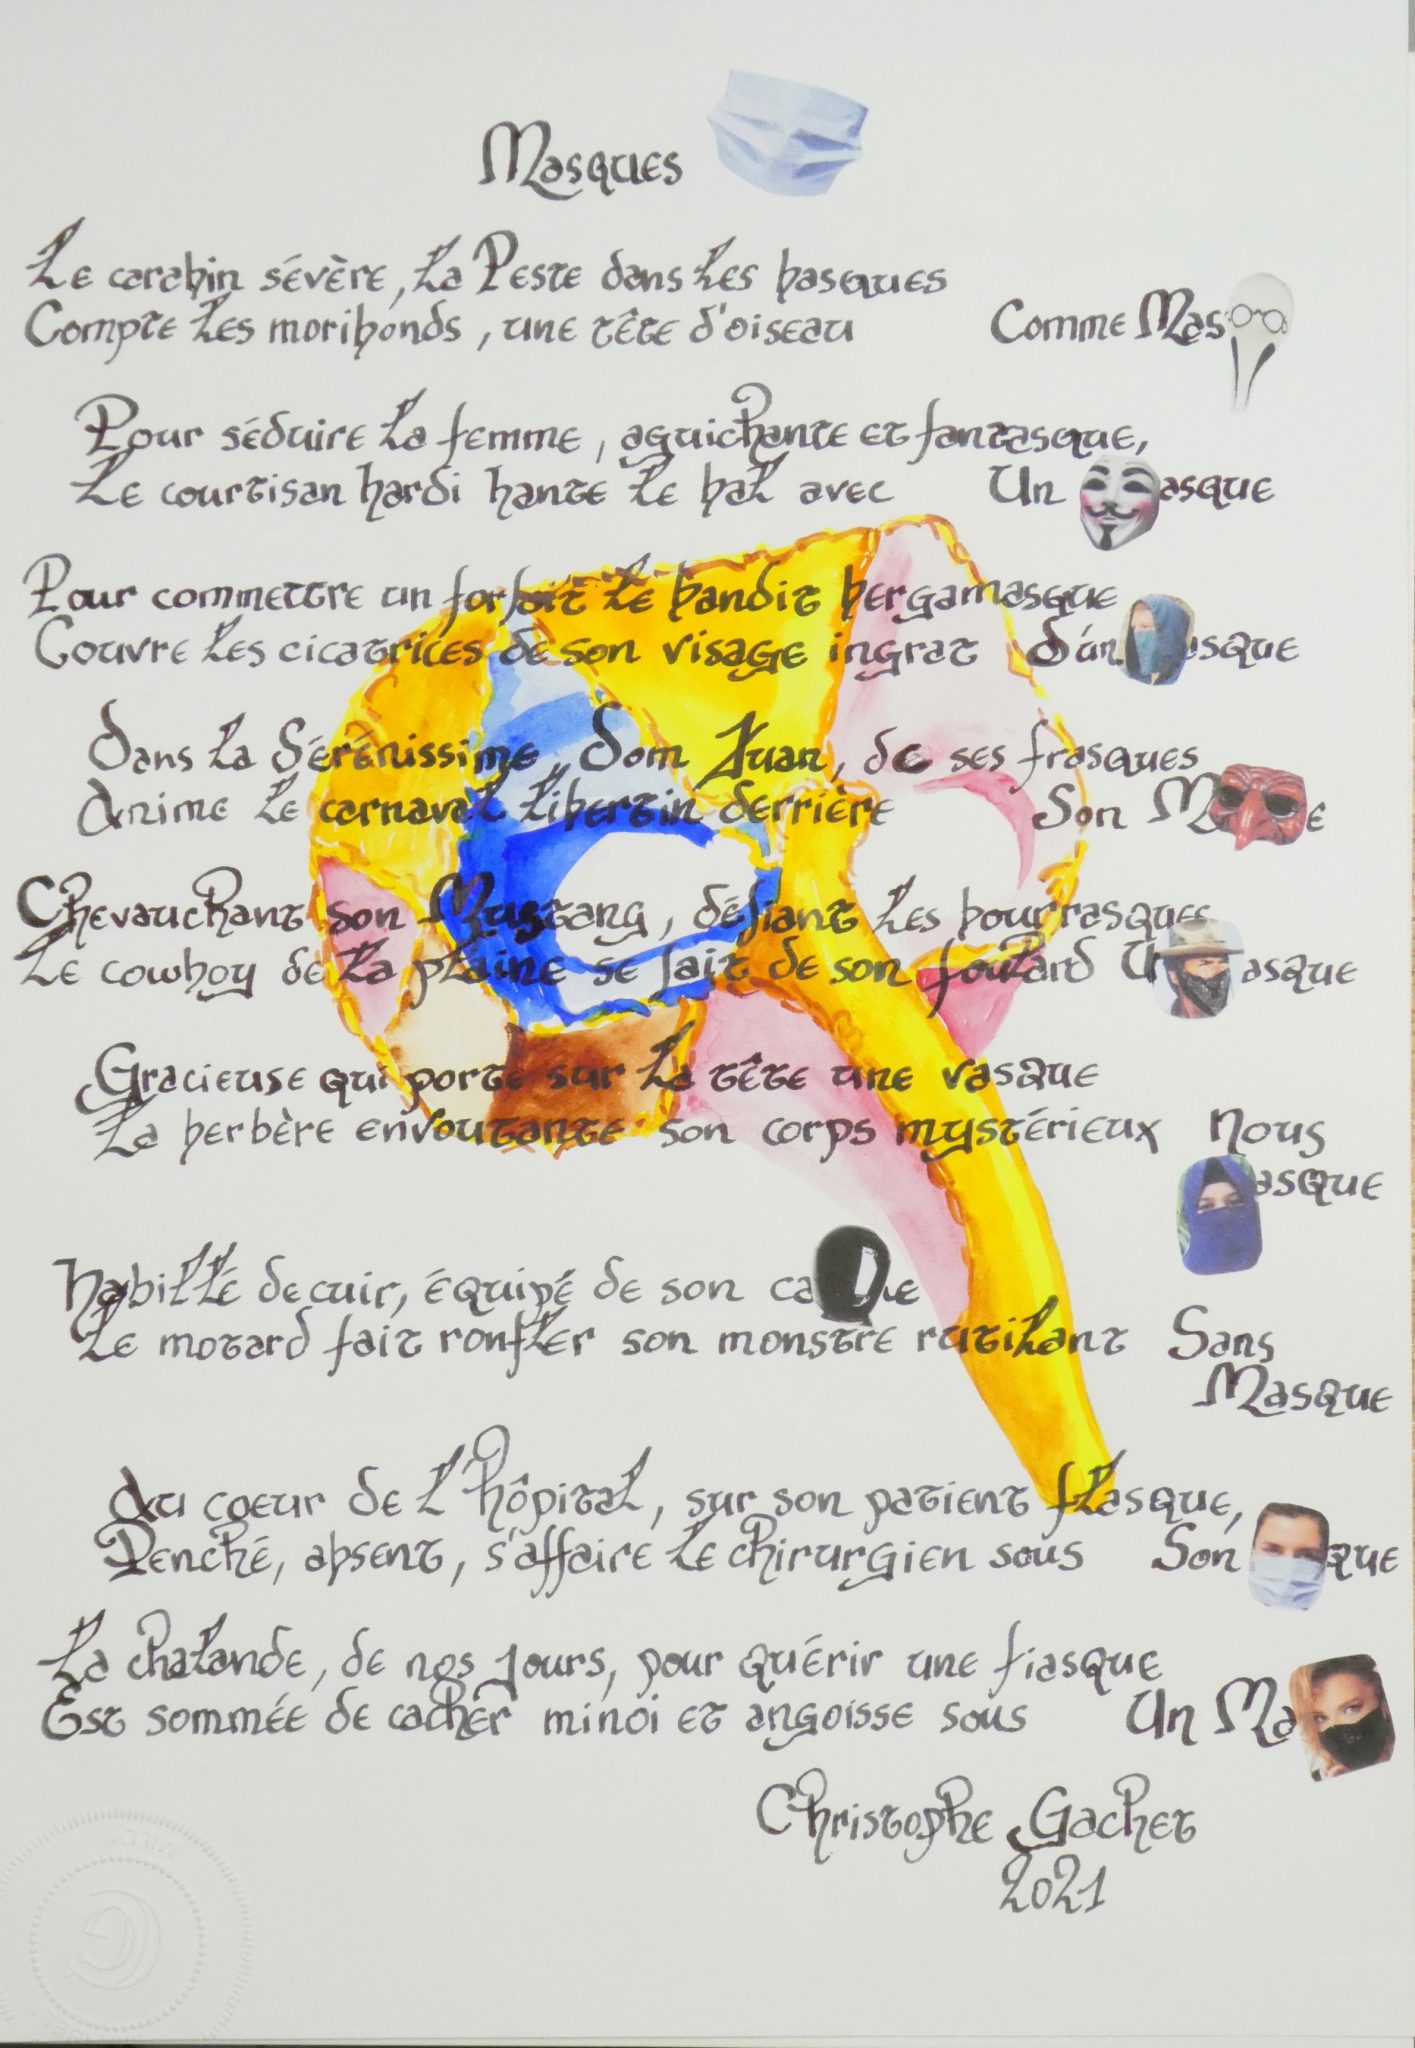 Masques
Le carabin sévère, la Peste dans les basques
Compte les moribonds, une tête d'oiseau Comme Mas
Pour séduire la femme, aguichante et fantasque,
Le courtisan hardi hante le bal avec Un asque
Pour commettre un forfait le bandit bergamasque
Couvre les cicatrices de son visage ingrat d'un asque
Dans la Sérénissime, Dom Juan, de ses frasques
Anime le carnaval libertin derrière Son M e
Chevauchant son Mustang, défiant les bourrasques
Le cowboy de la plaine se fait de son foulard Un asque
Gracieuse qui porte sur la tête une vasque
La berbère envoutante son corps mystérieux Nous
asque
Habillé de cuir, équipé de son ca ue
Le motard fait ronfler son monstre rutilant Sans
Masque
Au coeur de l'hôpital, sur son patient flasque,
Penché, absent, s'affaire le chirurgien sous Son que
La chalande, de nos jours, pour quérir une fiasque
Est sommée de cacher minoi et angoisse sous Un Ma
Christophe Gachet
2021